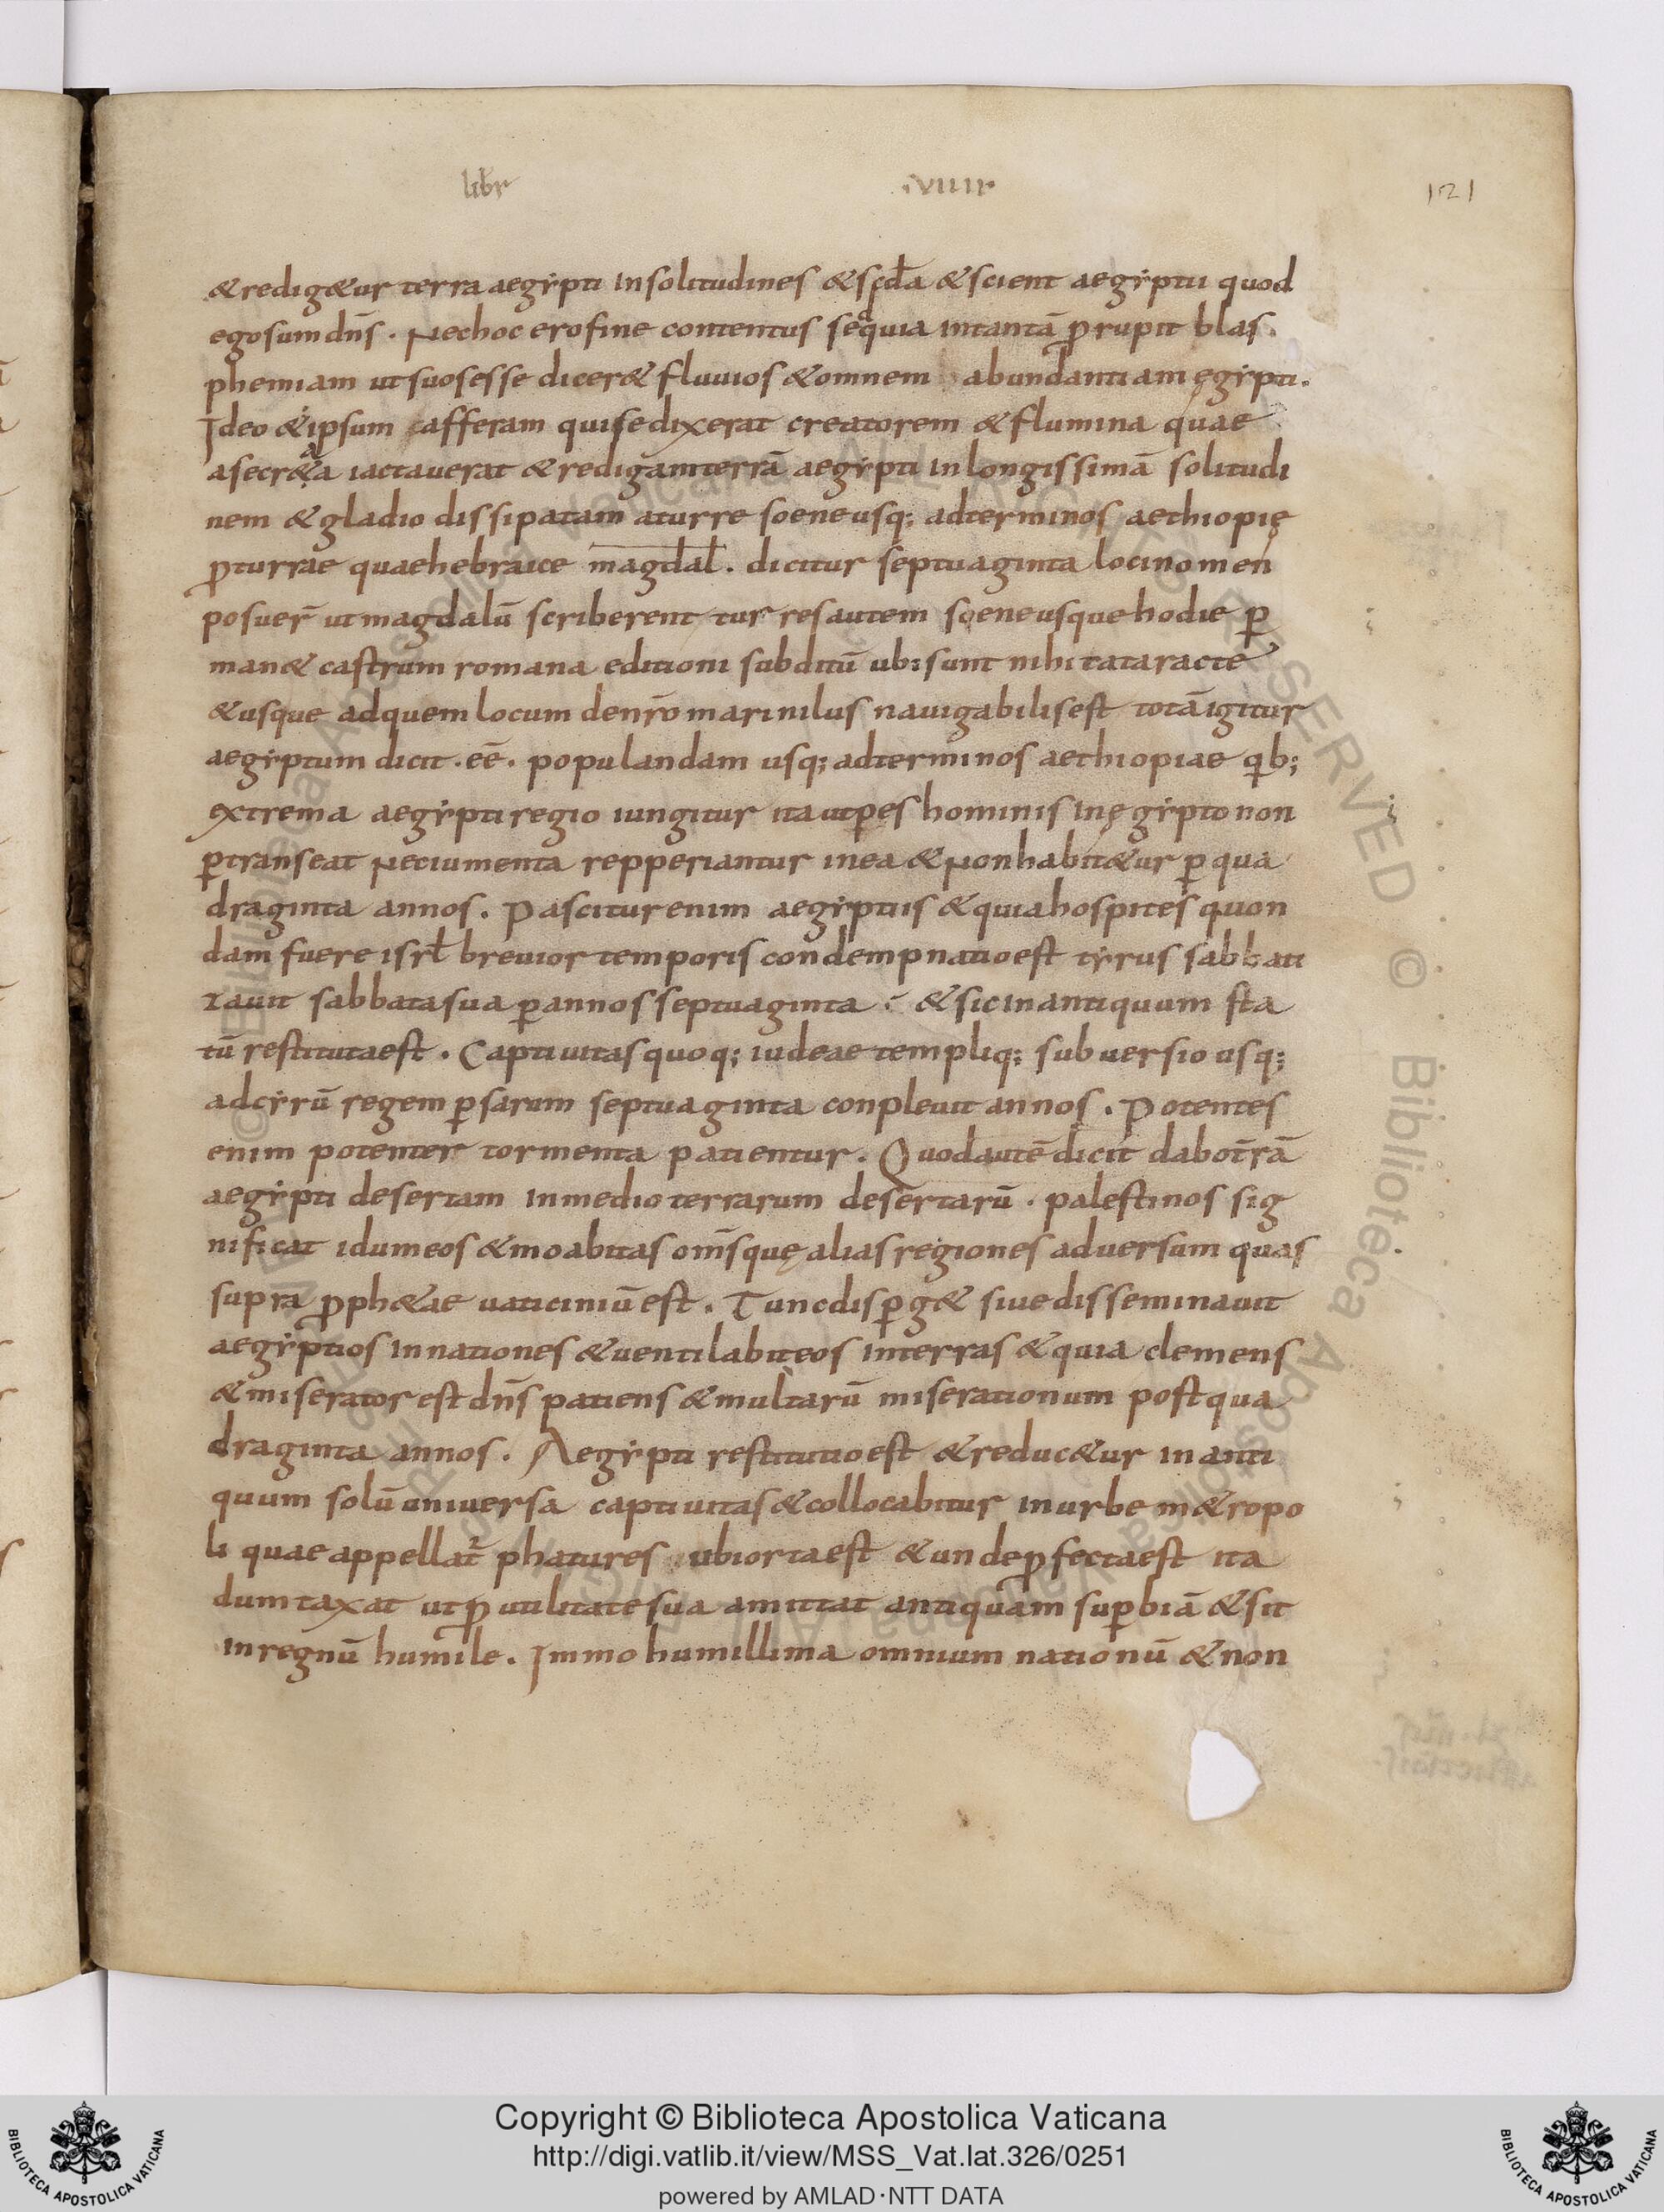 libr .VIIII.
121
& redig&ur terra aegẏpti in solitudines & scda & scient aegẏptii quod
ego sum dn̄s . Nec hoc ero fine contentus sed quia in tantā prupit blas
phemiam ut suos esse dicer& fluuios & omnem abundantiam ęgẏpti.
Ideo & ipsum afferam qui se dixerat creatorem & flumina quae
a se cr&a iactauerat & redigam terrā aegẏpti in longissimā solitudi
nem & gladio dissipatam a turre soene usq; ad terminos aethiopię
p turrae quae hebraice magdal . dicitur septuaginta loci nomen
posuer̄ ut magdalū scriberent turres autem soene usque hodie p
man& castrum romana editioni subditū ubi sunt nihi cataracte
& usque ad quem locum de nr̄o mari nilus nauigabilis est totā igitur
aegẏptum dicit . eē . populandam usq; ad terminos aethiopiae qb;
extrema aegẏpti regio iungitur ita ut pes hominis in ęgẏpto non
ptranseat Nec iumenta repperiantur in ea & Non habit&ur p qua
draginta annos . Pascitur enim aegẏptiis & quia hospites quon
dam fuere isrl breuior temporis condempnatio est tẏrus sabbati
zauit sabbata sua p annos septuaginta . & sic in antiquum sta
tū restituta est . Captiuitas quoq; iudeae templiq; subuersio usq;
ad cẏrū regem psarum septuaginta conpleuit annos . Potentes
enim potenter tormenta patientur . Quod autē dicit dabo tr̄ā
aegẏpti desertam in medio terrarum desertarū . palestinos sig
nificat idumeos & moabitas om̄s quę alias regiones aduersum quas
supra pph&ae uaticiniū est . Tunc dispg& siue disseminauit
aegẏptios in nationes & uentilabit eos in terras & quia clemens
& miserator est dn̄s patiens & multarū miserationum post qua
draginta annos . Aegẏpti restitutio est & reduc&ur in anti
quum solū uniuersa captiuitas & collocabitur in urbe m&ropo
li quae appellat̄ phatures ubi orta est & unde pfecta est ita
dumtaxat ut p utilitate sua amittat antiquam supbiā & sit
in regnū humile . Immo humillima omnium nationū & non
Copyright © Biblioteca Apostolica Vaticana
http://digi.vatlib.it/view/MSS_Vat.lat.326/0251
powered by AMLAD·NTT DATA
BIBLIOTECA APOSTOLICA VATICANA
BIBLIOTECA APOSTOLICA VATICANA